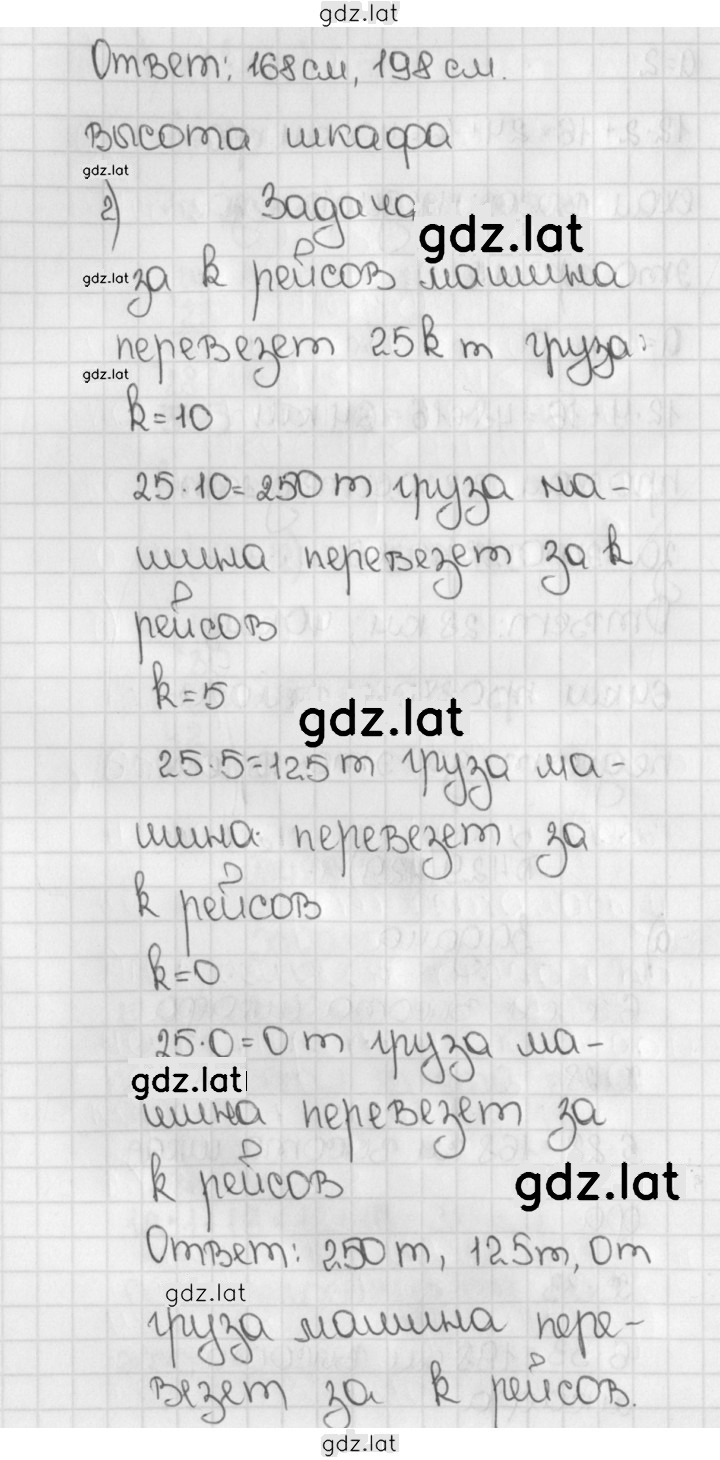 gdz.lat
Ответ: 168см, 198 см.
высота шкафа
gdz.lat
2) Задача
gdz.lat
gdz.lat за k рейсов машина
перевезет 25k т груза:
gdz.lat
k=10
25·10=250т груза ма-
шина перевезет за k
рейсов
k=5
gdz.lat
25·5=125т груза ма-
шина перевезет за
k рейсов
k=0
25·0=0 т груза ма-
gdz.lat
шина перевезет за
k рейсов
gdz.lat
Ответ: 250т, 125т, 0т
gdz.lat
груза машина пере-
везет за k рейсов.
gdz.lat